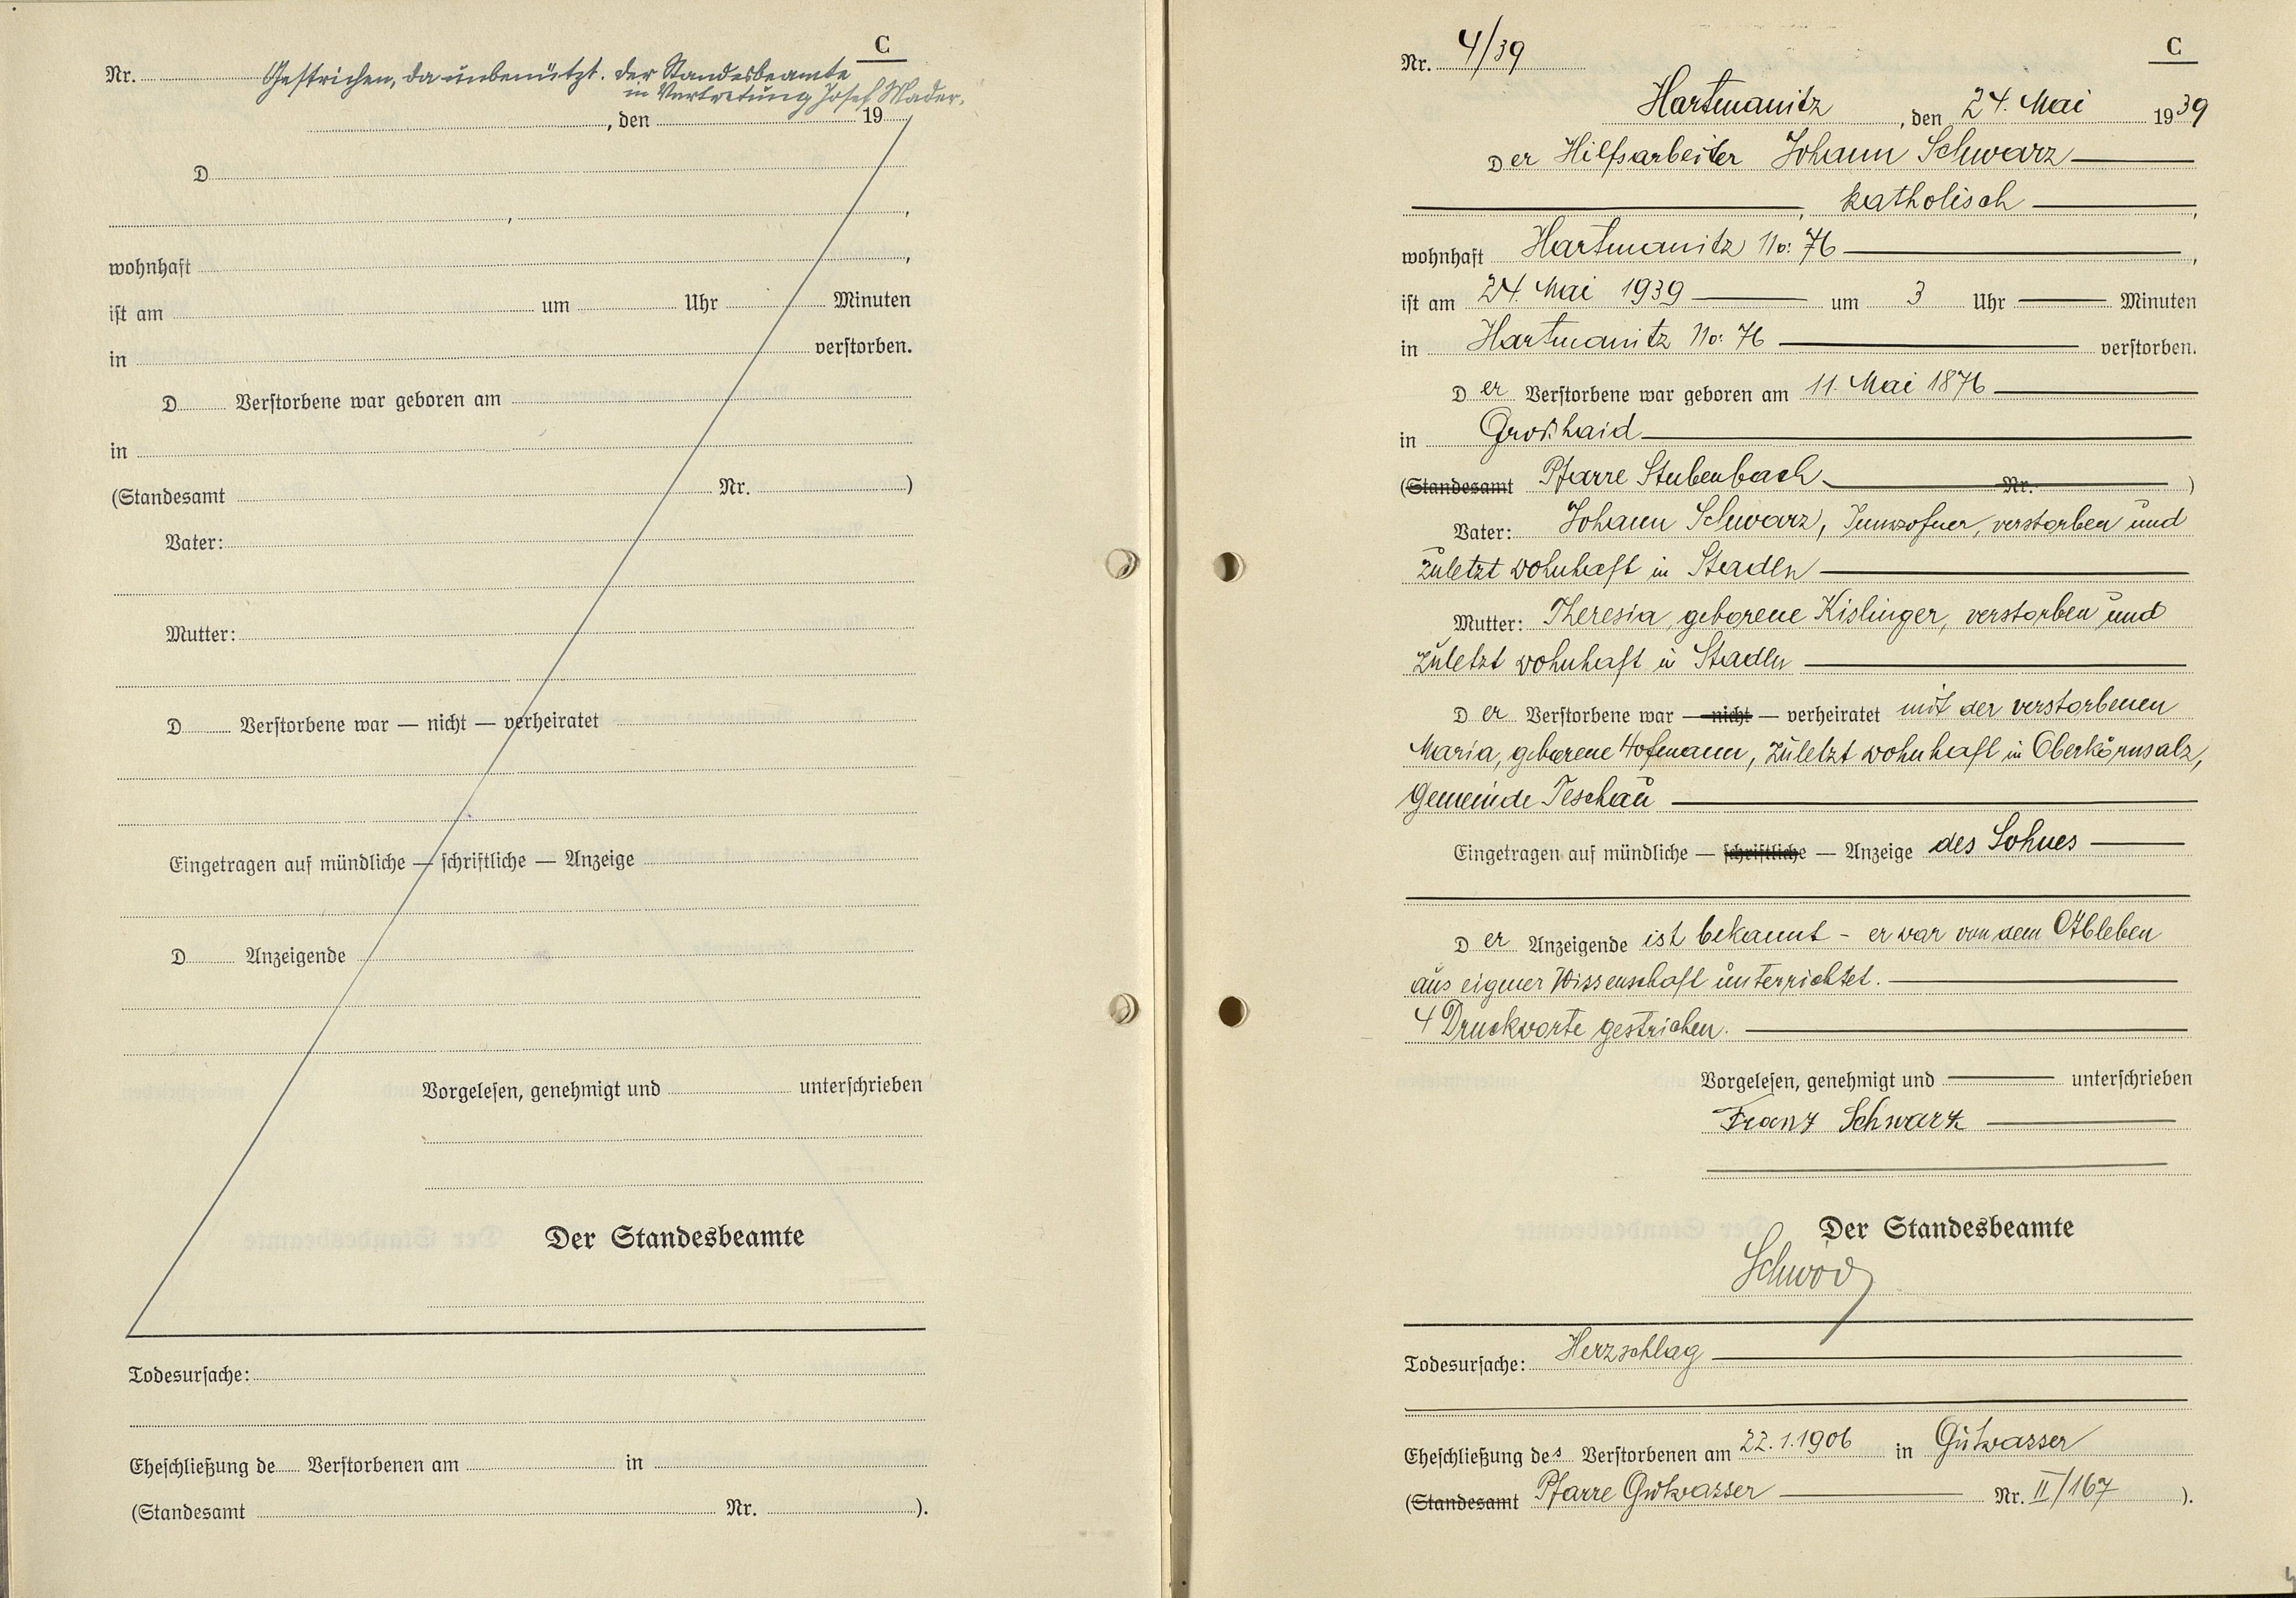 C
Nr. Gestrichen, da unbenützt. Der Standesbeamte
in Vertretung Josef Mader.
, den 19
D
, ,
wohnhaft ,
ist am um Uhr Minuten
in verstorben.
D Verstorbene war geboren am
in
(Standesamt Nr. )
Vater:
Mutter:
D Verstorbene war — nicht — verheiratet
Eingetragen auf mündliche — schriftliche — Anzeige
D Anzeigende
Vorgelesen, genehmigt und unterschrieben
Der Standesbeamte
Todesursache:
Eheschließung de Verstorbenen am in
(Standesamt Nr. ).
C
Nr. 4/39
Hartmanitz, den 24. Mai 1939
Der Hilfsarbeiter Johann Schwarz
, katholisch ,
wohnhaft Hartmanitz No: 76 ,
ist am 24. Mai 1939 um 3 Uhr Minuten
in Hartmanitz No: 76 verstorben.
Der Verstorbene war geboren am 11. Mai 1876
in Großhaid
(Standesamt Pfarre Stubenbach Nr. )
Vater: Johann Schwarz, verstorben und
zuletzt wohnhaft in Stadln
Mutter: Theresia, geborene Kislinger, verstorben und
zuletzt wohnhaft in Stadln
Der Verstorbene war — nicht — verheiratet mit der verstorbenen
Maria, geborene Hofmann, zuletzt wohnhaft in Oberkörnsalz,
Gemeinde Teschau
Eingetragen auf mündliche — schriftliche — Anzeige des Sohnes
Der Anzeigende ist bekannt - er war von dem Ableben
aus eigner Wissenschaft unterrichtet.
4 Druckworte gestrichen.
Vorgelesen, genehmigt und unterschrieben
Franz Schwarz
Der Standesbeamte
Todesursache: Herzschlag
Eheschließung des Verstorbenen am 22.1.1906 in Gutwasser
(Standesamt Pfarre Gutwasser Nr. II/167 ).